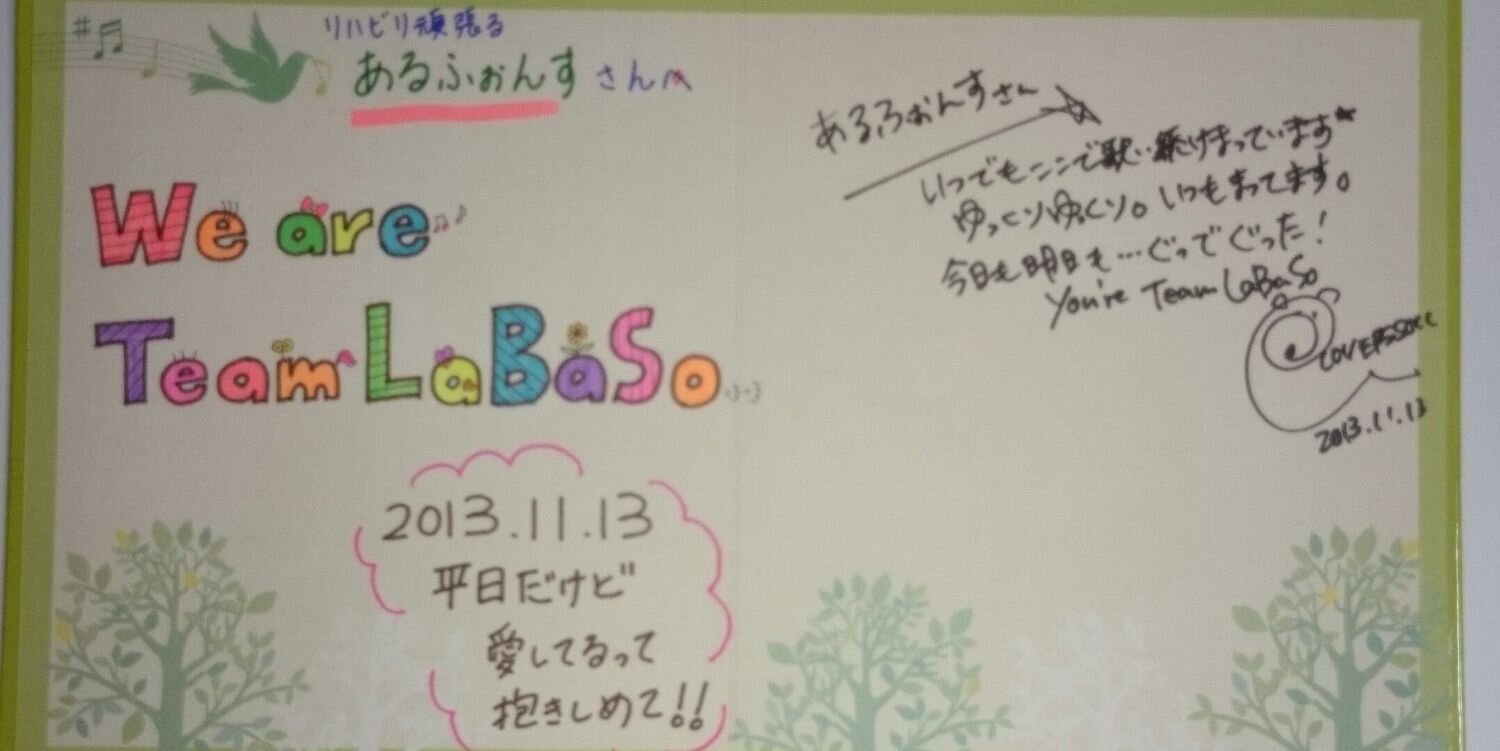 リハビリ頑張る
あるふぉんすさんへ
We are
Team LaBaSo
2013.11.13
平日だけど
愛してるって
抱きしめて!!
あるふぉんすさん
いつでもここで歌い続けまっています
ゆっくりゆっくり。いつもまってます。
今日も明日も…ぐっでぐった!
You're Team LaBaSo
2013.11.13